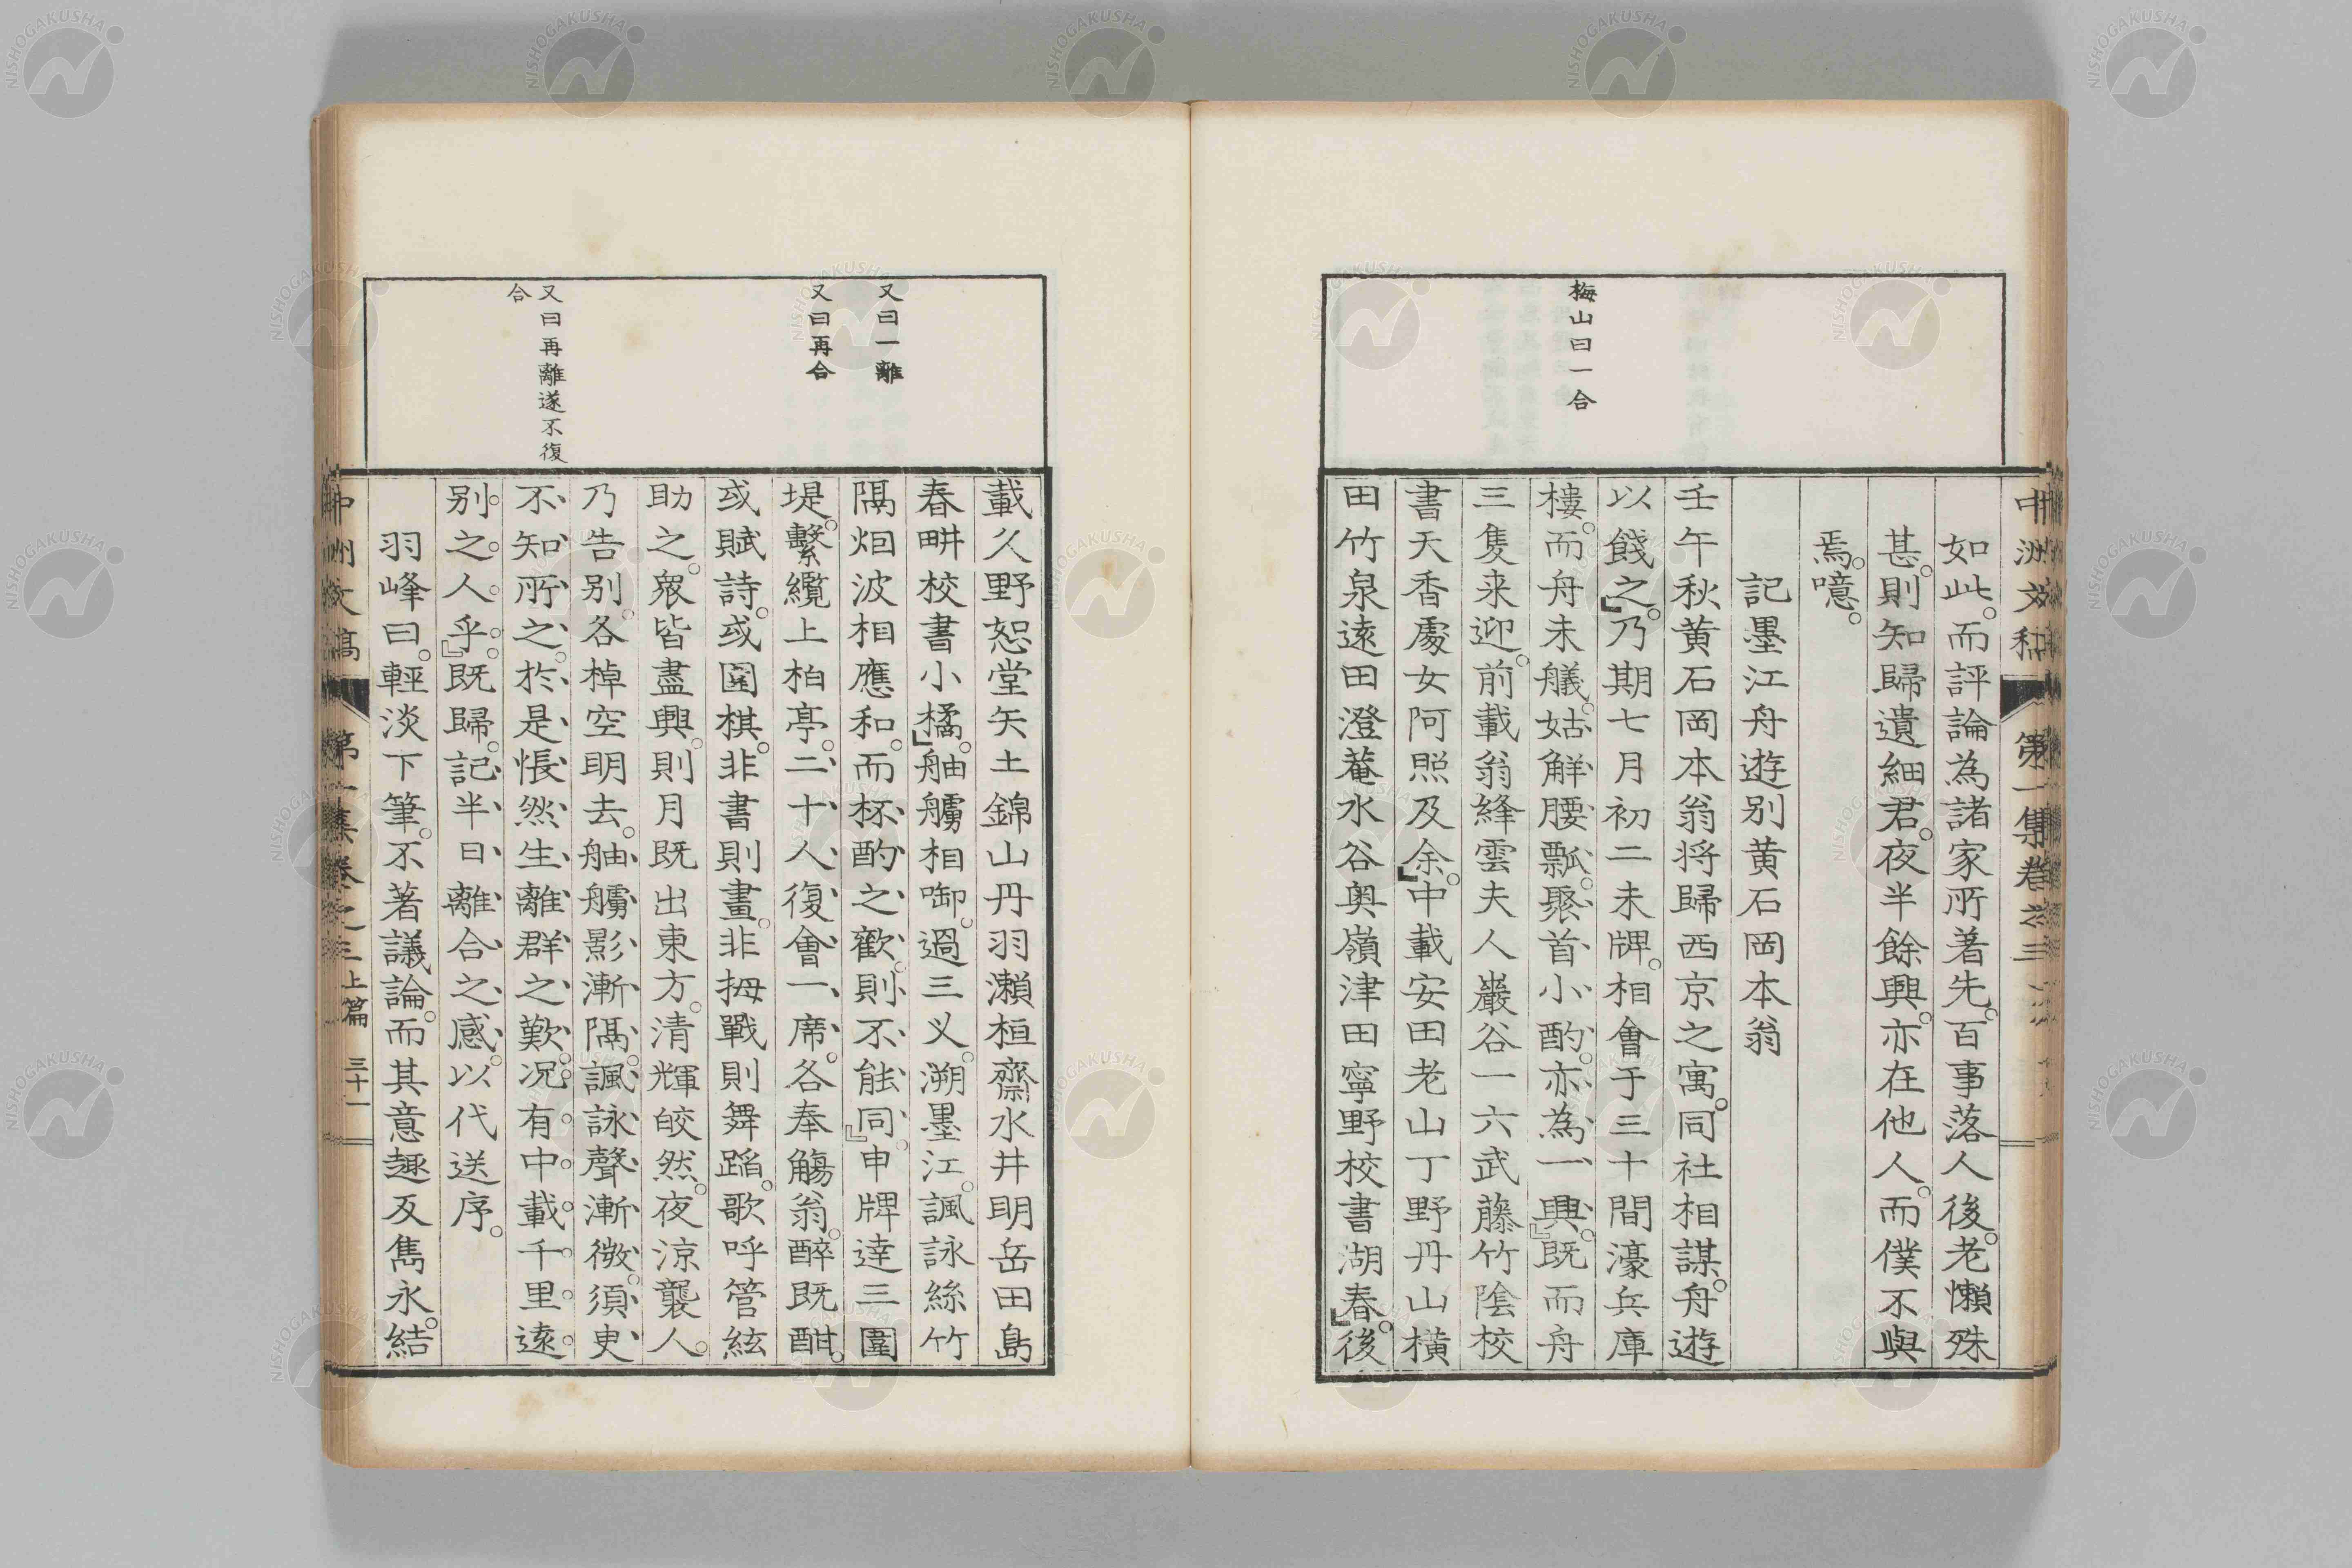 中洲文稿 第一集卷之三
如此。而評論為諸家所著先。百事落人後。老懶殊
甚。則知歸遺細君。夜半餘興。亦在他人。而僕不與
焉。噫。
記墨江舟遊別黄石岡本翁
壬午秋黄石岡本翁将歸西京之寓。同社相謀。舟遊
以餞之。乃期七月初二未牌。相會于三十間濠兵庫
樓。而舟未艤。姑解腰瓢。聚首小酌。亦為一興。既而舟
三隻来迎。前載翁絳雲夫人巖谷一六武藤竹陰校
書天香處女阿照及余。中載安田老山丁野丹山横
田竹泉遠田澄菴水谷奥嶺津田寧野校書湖春。後
梅山曰一合
載久野恕堂矢土錦山丹羽瀬桓齋水井明岳田島
春畊校書小橘。舳艫相啣。過三乂。溯墨江。諷詠絲竹
隔烟波相應和。而杯酌之歡。則不能同。申牌達三圍
堤。繫纜上柏亭。二十人復會一席。各奉觴翁。醉既酣。
或賦詩。或圍棋。非書則畫。非拇戰則舞蹈。歌呼管絃
助之。衆皆盡興。則月既出東方。清輝皎然。夜涼襲人。
乃告別。各棹空明去。舳艫影漸隔。諷詠聲漸微。須臾
不知所之。於是悵然生離群之歎。况有中載千里遠
別之人乎。既歸。記半日離合之感。以代送序。
羽峰曰。輕淡下筆。不著議論。而其意趣反雋永。結
又曰一離
又曰再合
又曰再離遂不復
合
中洲文稿 第一集卷之三上篇 三十一